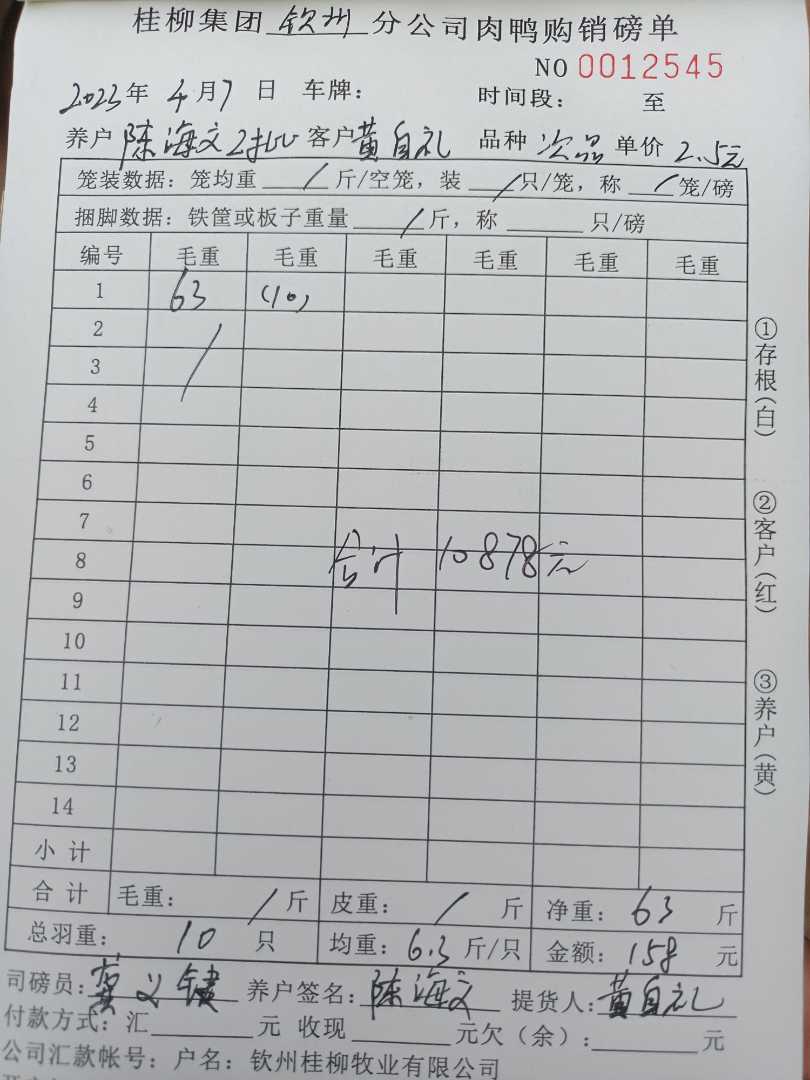 桂柳集团 钦州 分公司肉鸭购销磅单
NO 0012545
2023年 4月7日 车牌： 时间段： 至
养户 陈海文2批 客户 黄自礼 品种 次品 单价 2.5元
笼装数据：笼均重 / 斤/空笼，装 / 只/笼，称 / 笼/磅
捆脚数据：铁筐或板子重量 / 斤，称 只/磅
编号 毛重 毛重 毛重 毛重 毛重 毛重
1 63 (10)
2 /
3
4
5
6
7
8 合计 10878元
9
10
11
12
13
14
小计
合计 毛重： / 斤 皮重： / 斤 净重： 63 斤
总羽重： 10 只 均重： 6.3 斤/只 金额： 158 元
司磅员： 龚义键 养户签名： 陈海文 提货人: 黄自礼
付款方式：汇 元 收现 元欠（余）: 元
公司汇款帐号：户名：钦州桂柳牧业有限公司
①存根（白）
②客户（红）
③养户（黄）